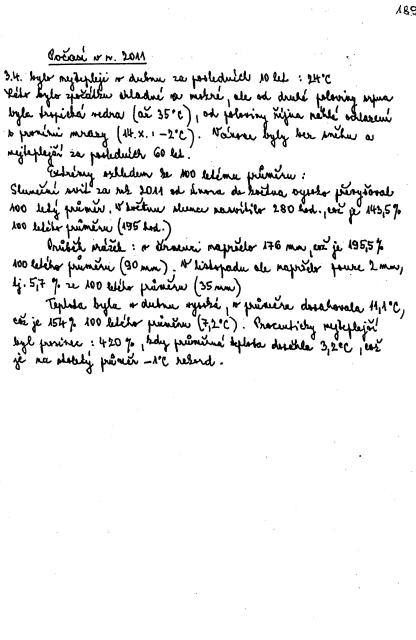 189
Počasí v r. 2011
3.4. bylo nejtepleji v dubnu za posledních 10 let : 24°C
Léto bylo zpočátku chladné a mokré, ale od druhé poloviny srpna
byla tropická vedra (až 35°C), od poloviny října náhlé ochlazení
s prvními mrazy (14.X. : -2°C). Vánoce byly bez sněhu a
nejteplejší za posledních 60 let.
Extrémy vzhledem ke 100 letému průměru :
Sluneční svit za rok 2011 od února do května vysoko převyšoval
100 letý průměr. V květnu slunce nasvítilo 280 hod., což je 143,5%
100 letého průměru (195 hod.)
Průběh srážek : v červenci napršelo 176 mm, což je 195,5%
100 letého průměru (90 mm). V listopadu ale napršelo pouze 2 mm,
tj. 5,7 % ze 100 letého průměru (35 mm)
Teplota byla v dubnu vysoká, v průměru dosahovala 11,1°C,
což je 154% 100 letého průměru (7,2°C). Procenticky nejteplejší
byl prosinec : 420%, kdy průměrná teplota dosáhla 3,2°C, což
je na stoletý průměr -1°C rekord.